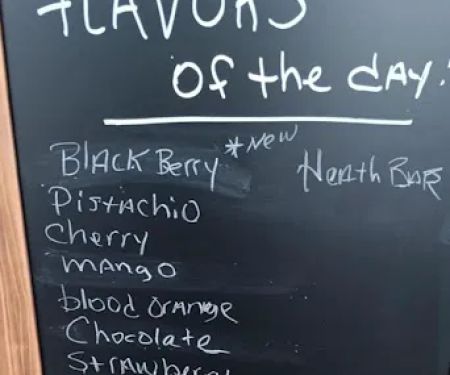 FLAVORS
of the day.
BlackBerry *New Heath BAR
Pistachio
Cherry
mango
blood orange
Chocolate
Strawberry